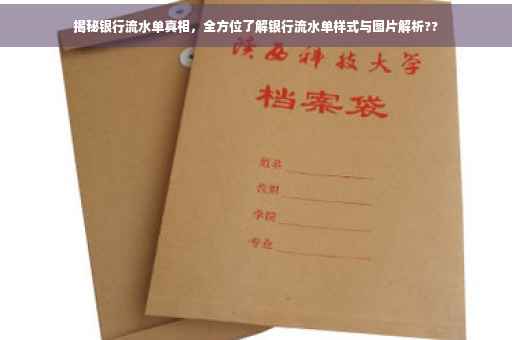 揭秘银行流水单真相，全方位了解银行流水单样式与图片解析??
陕西科技大学
档案袋
姓名
学院
专业